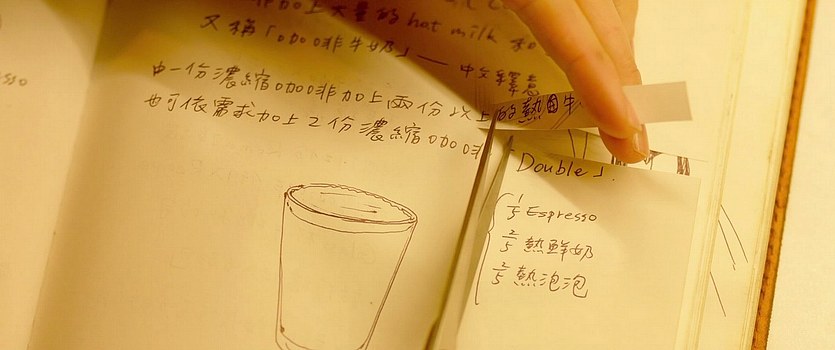 加上大量的hot milk 和
又稱「咖啡牛奶」——中文釋意
由一份濃縮咖啡加上兩份以上的熱鮮牛
也可依需求加上2份濃縮咖啡
sso
「Double」.
1/5 Espresso
2/5 熱鮮奶
2/5 熱泡泡